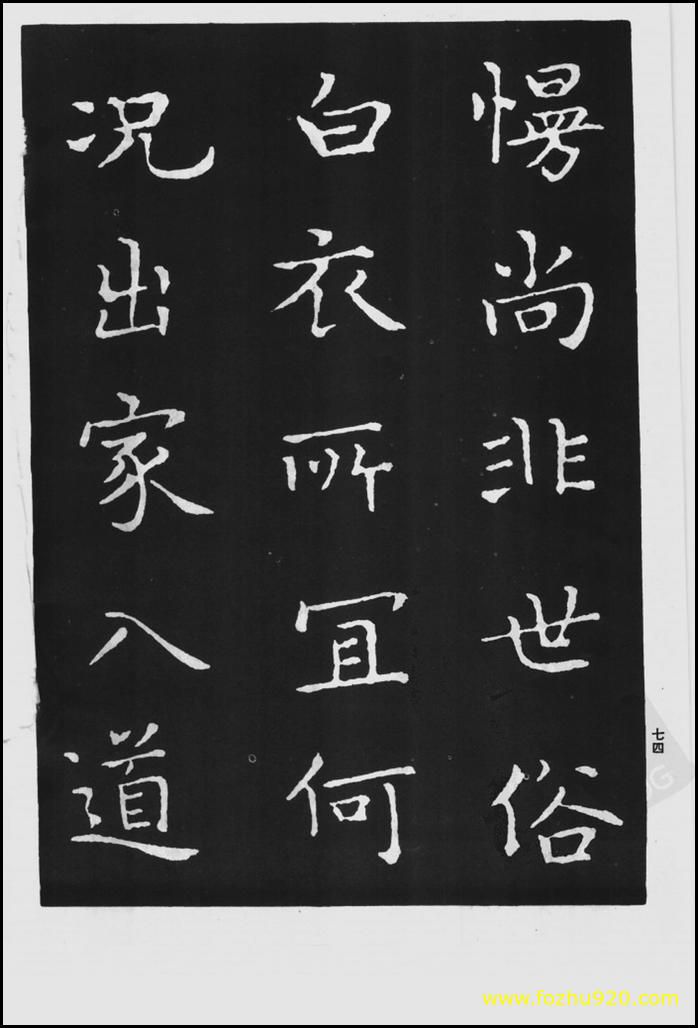 慢尚非世俗
白衣所冝何
况出家入道
七四
www.fozhu920.com